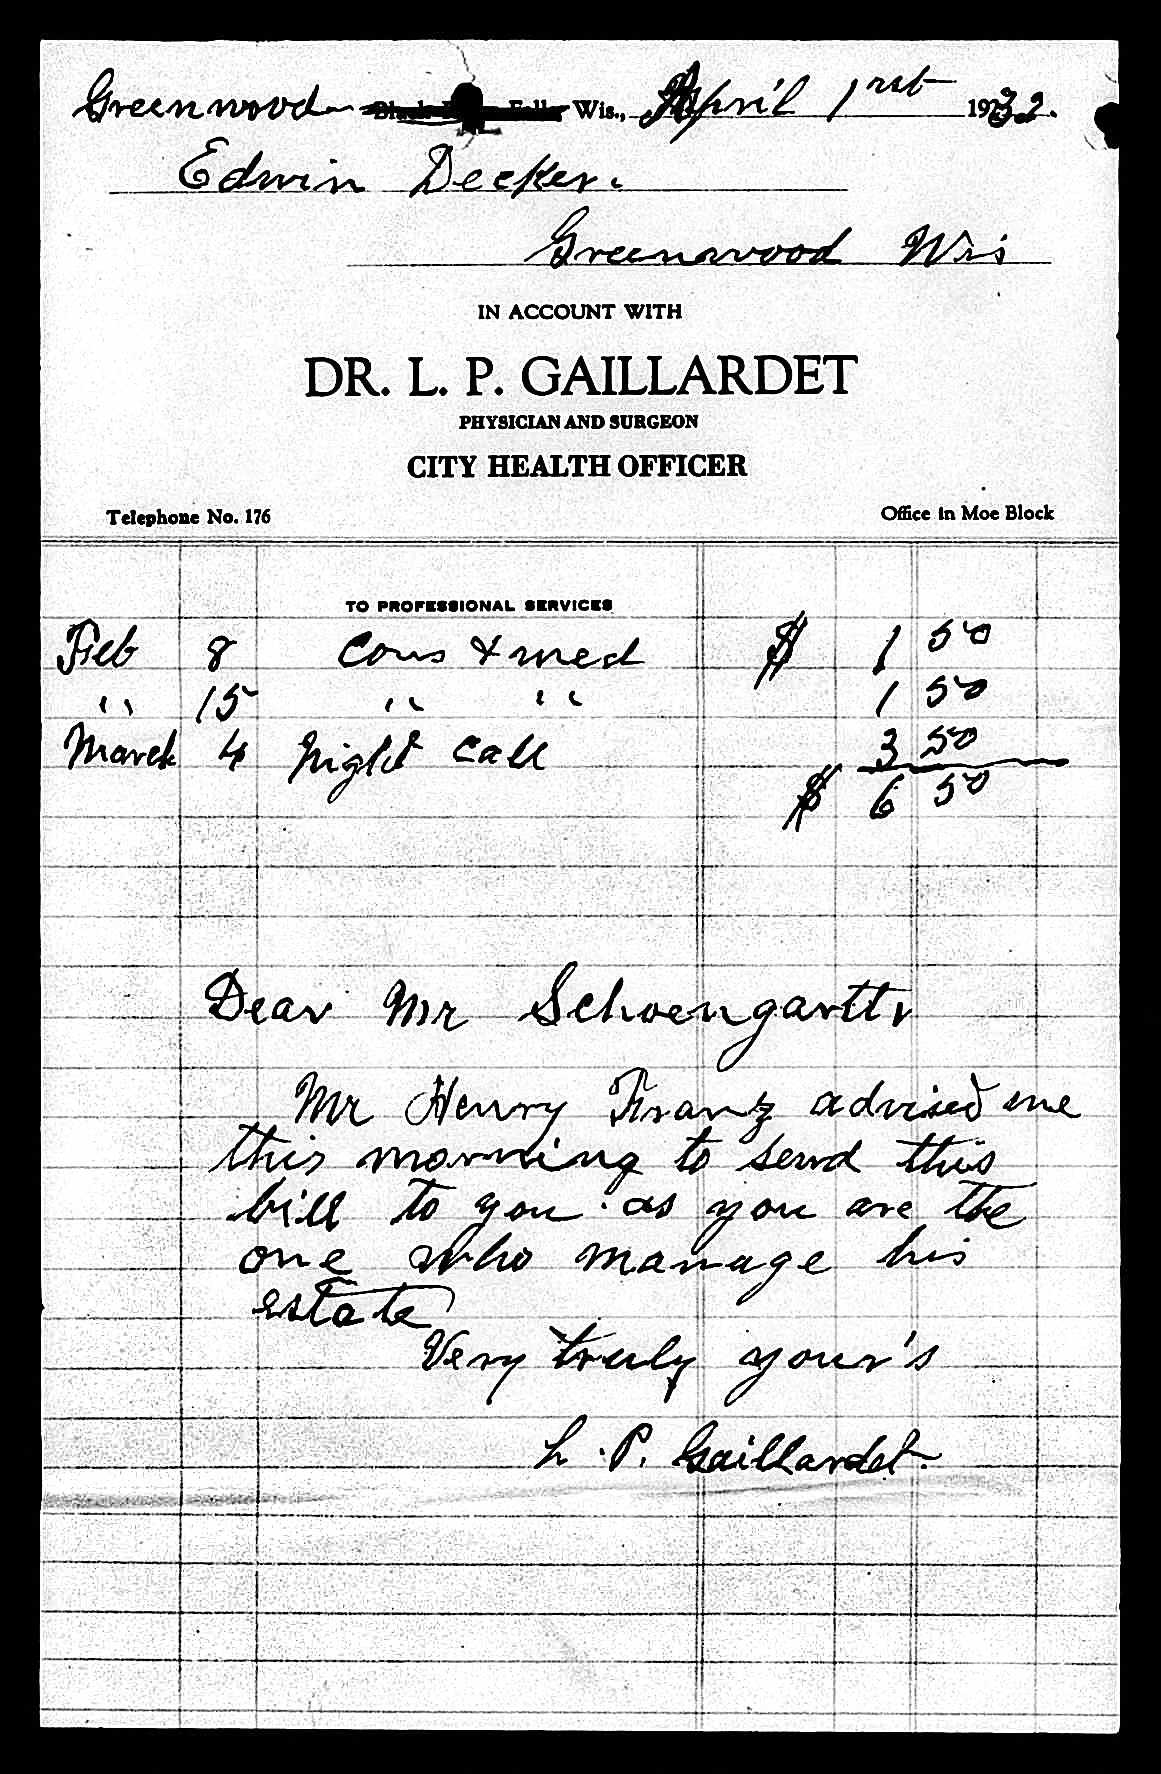 Greenwood Wis., April 1rst 1932.
Edwin Decker.
Greenwood Wis
IN ACCOUNT WITH
DR. L. P. GAILLARDET
PHYSICIAN AND SURGEON
CITY HEALTH OFFICER
Telephone No. 176 Office in Moe Block
TO PROFESSIONAL SERVICES
Feb 8 Cons & med $ 1 50
" 15 " " 1 50
March 4 Night Call 3 50
$ 6 50
Dear Mr Schoengartt
Mr Henry Franz advised me
this morning to send this
bill to you as you are the
one who manage his
estate
Very truly your's
L. P. Gaillardet.